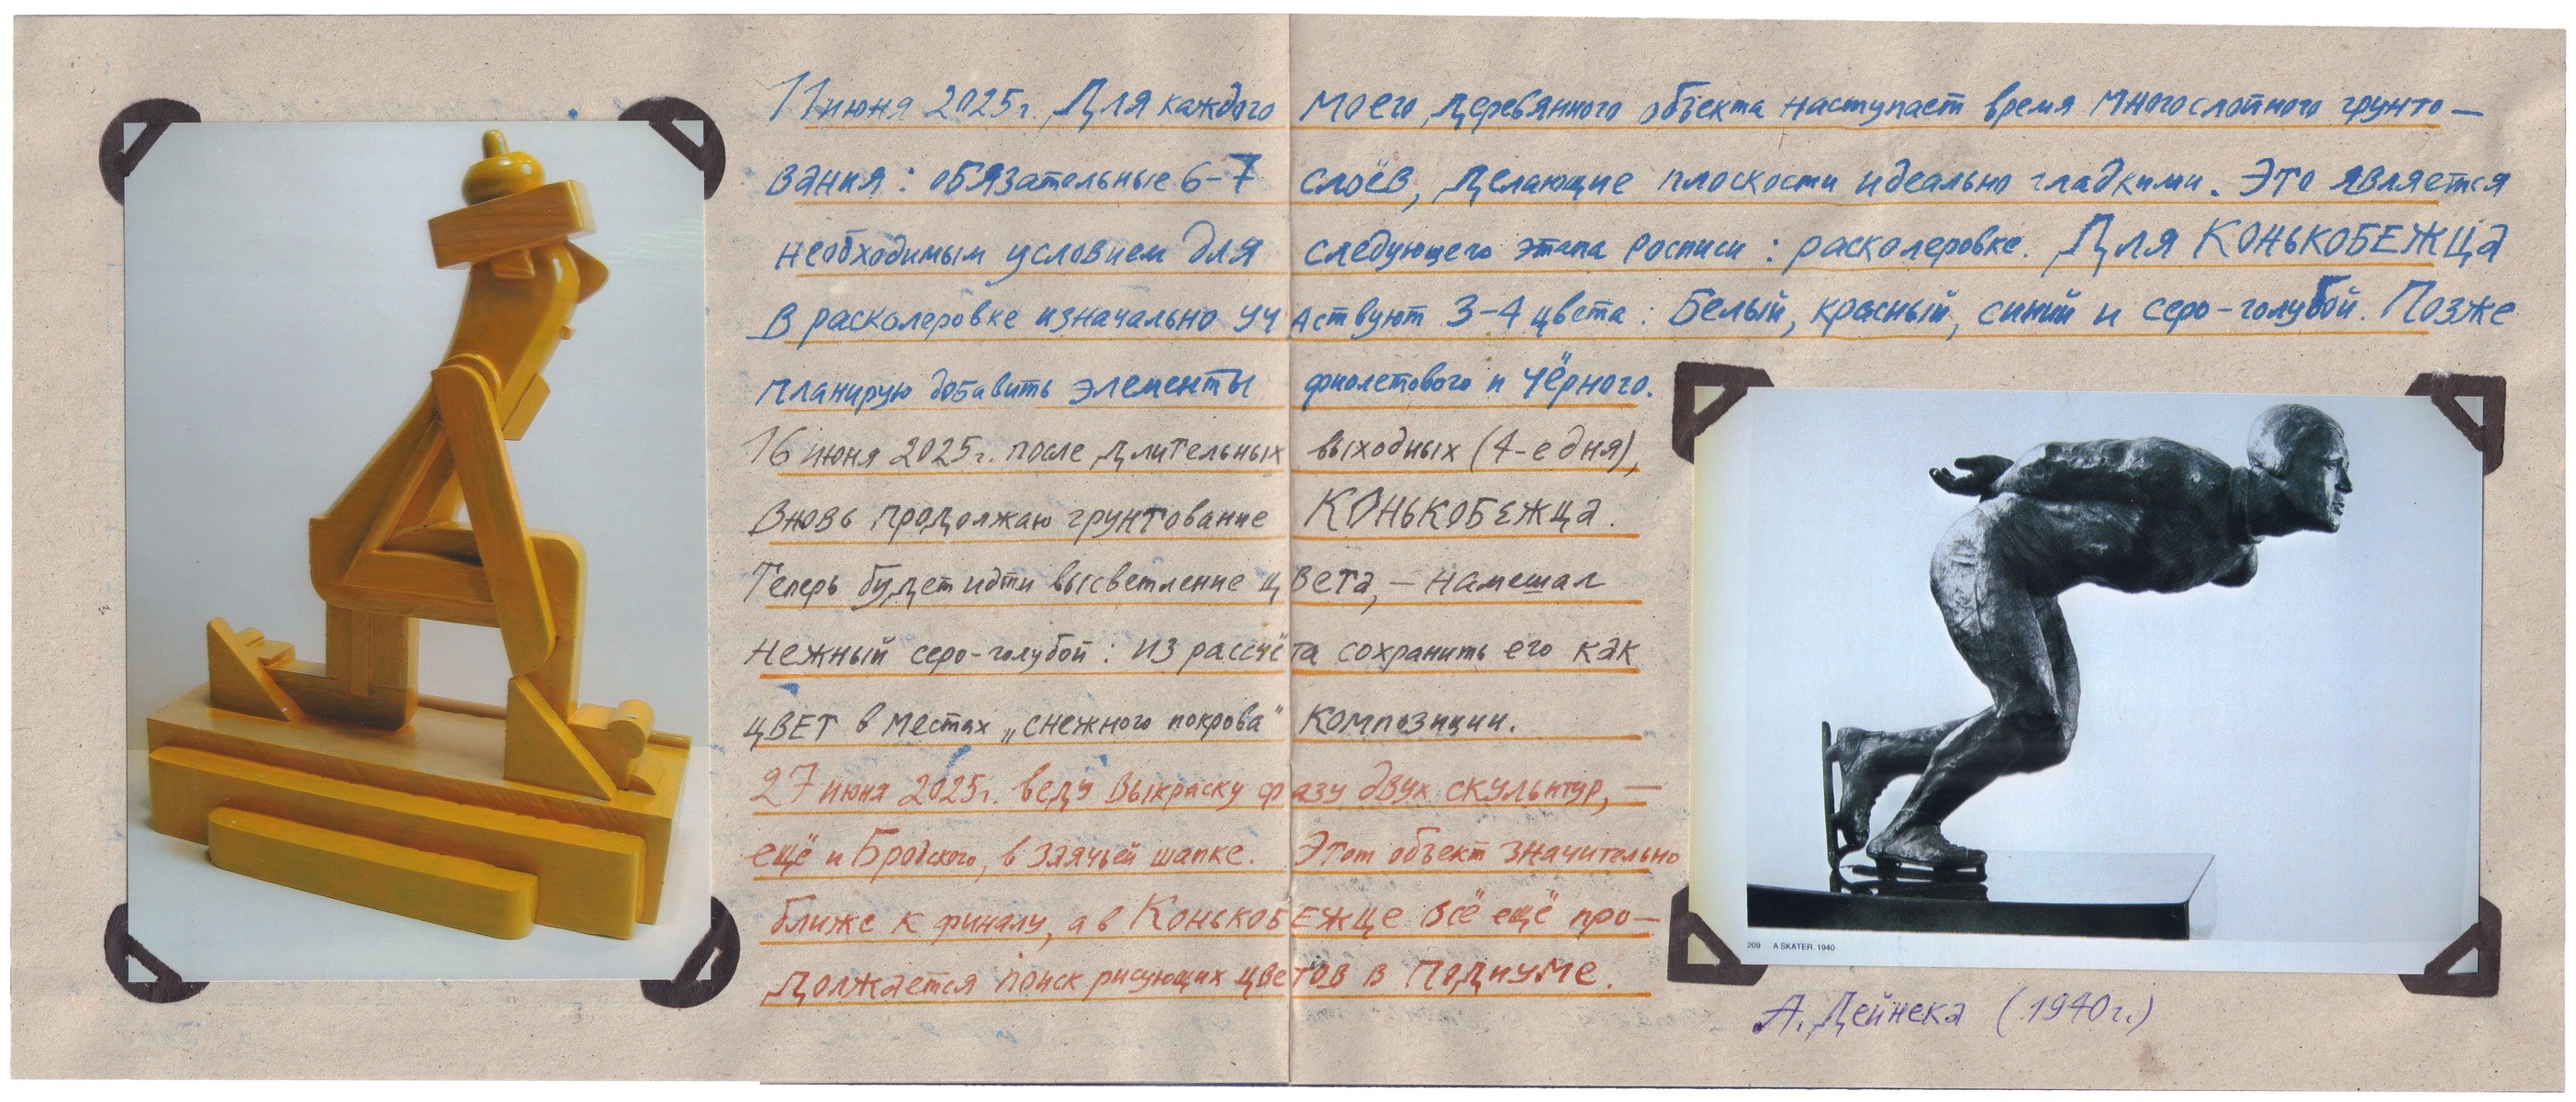 11 июня 2025г. Для каждого моего деревянного объекта наступает время многослойного грунто—
вания: обязательные 6-7 слоёв, делающие плоскости идеально гладкими. Это является
необходимым условием для следующего этапа росписи: расколеровке. Для КОНЬКОБЕЖЦа
В расколеровке изначально участвуют 3-4 цвета: Белый, красный, синий и серо-голубой. Позже
планирую добавить элементы фиолетового и чёрного.
16 июня 2025г. после длительных выходных (4-е дня),
вновь продолжаю грунтование КОНЬКОБЕЖЦа.
Теперь будет идти высветление цвета, — намешал
нежный серо-голубой: из рассчёта сохранить его как
ЦВЕТ в местах „снежного покрова" композиции.
27 июня 2025г. веду выкраску фазу двух скульптур, —
ещё и Бродского, в заячьей шапке. Этот объект значительно
ближе к финалу, а в КОНЬКОБЕЖЦЕ всё ещё про—
должается поиск рисующих цветов в подиуме.
209 A SKATER. 1940
А. Дейнека (1940г.)